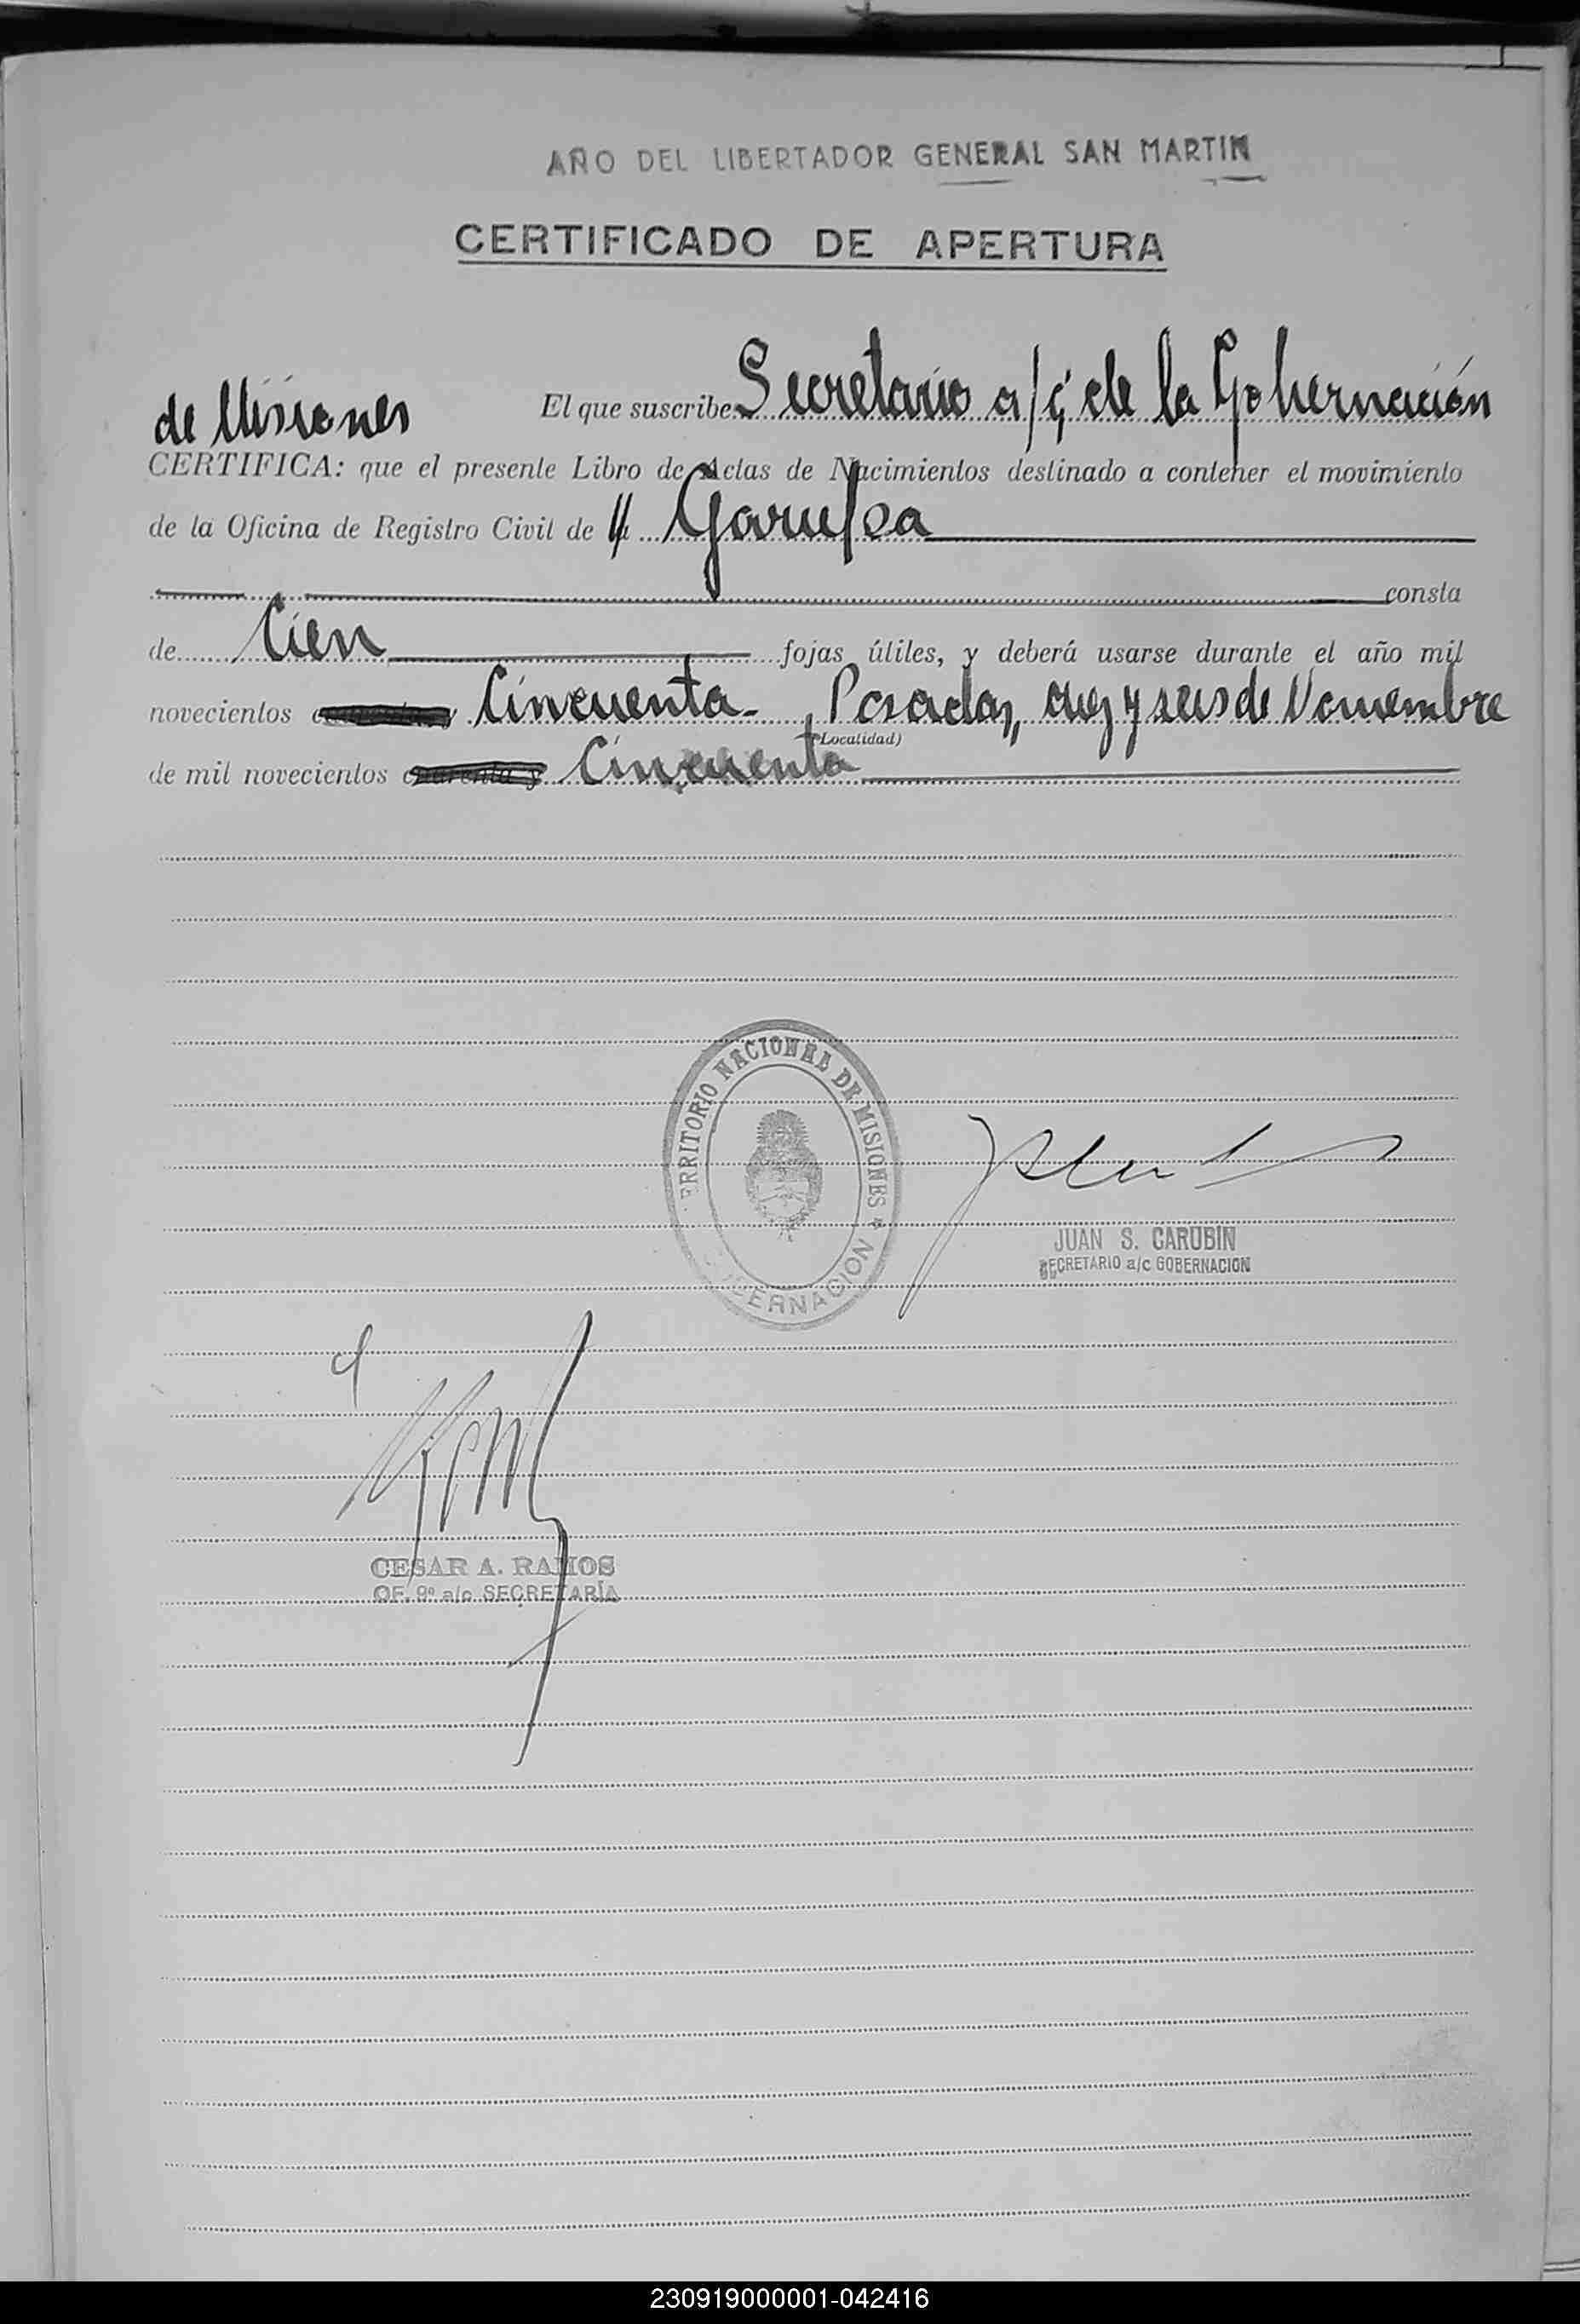 AÑO DEL LIBERTADOR GENERAL SAN MARTIN
CERTIFICADO DE APERTURA
El que suscribe Secretario a/c de la Gobernación
de Misiones
CERTIFICA: que el presente Libro de Actas de Nacimientos destinado a contener el movimiento
de la Oficina de Registro Civil de Garupá
consta
de Cien fojas útiles, y deberá usarse durante el año mil
novecientos Cincuenta - Posadas, diez y seis de Noviembre
(Localidad)
de mil novecientos cuarenta y Cincuenta
TERRITORIO NACIONAL DE MISIONES
GOBERNACION
JUAN S. CARUBIN
SECRETARIO a/c GOBERNACION
CESAR A. RAMOS
OF. 9º a/c SECRETARÍA
230919000001-042416